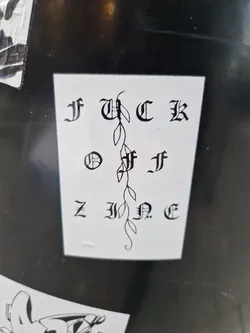 FUCK
OFF
ZINE